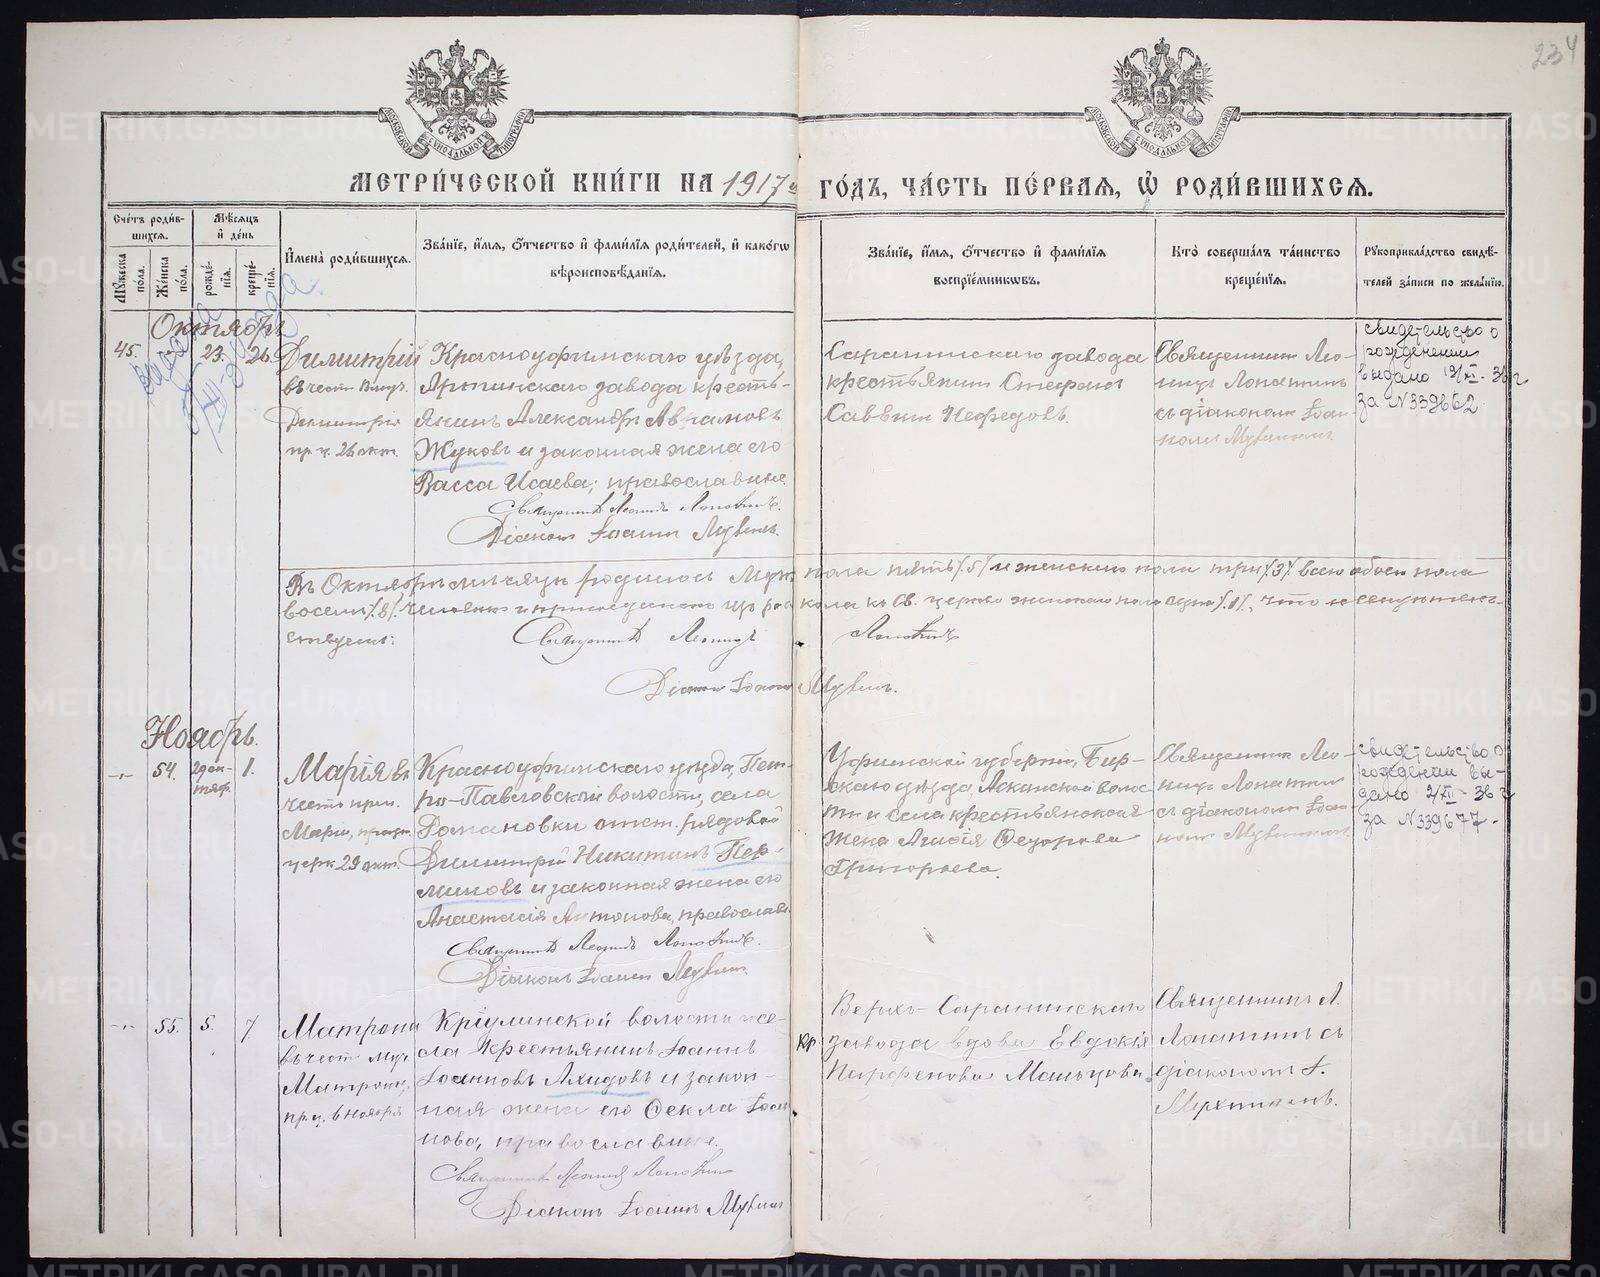 234
МЕТРИ́ЧЕСКОЙ КНИ́ГИ НА 1917 й ГО́ДЪ, ЧА́СТЬ ПЕ́РВАЯ, Ѡ҆ РОДИ́ВШИХСЯ.
Сче́тъ роди́вшихся.
Му́жеска по́ла.
Же́нска по́ла.
Мѣ́сяцъ и҆ де́нь
рожде́нія.
креще́нія.
И҆мена̀ роди́вшихся.
Зва́ніе, и҆́мя, ѻ҆́тчество и҆ фами́лія роди́телей, и҆ како́гѡ
вѣроисповѣ́данія.
Зва́ніе, и҆́мя, ѻ҆́тчество и҆ фами́лія
воспріе́мникѡвъ.
Кто̀ соверша́лъ та́инство
креще́нія.
Рꙋкоприкла́дство свидѣ́-
телей за́писи по жела́нію.
Октябрь
45. 23. 26.
Димитрій
въ честь
Димитрія
пр. ц. 26 окт.
Красноуфимскаго уѣзда,
Артинскаго завода кресть-
янинъ Александръ Авраамовъ
Жуковъ и законная жена его
Васса Исаева; православные.
Священникъ Леонидъ Лопатинъ.
Діаконъ Іоаннъ
Саранинскаго завода
крестьянинъ Стефанъ
Саввинъ Нефедовъ.
Священникъ Лео-
нидъ Лопатинъ
съ діакономъ Іоан-
номъ
свидетельство о
рождении
выдано 19/XI - 36 г
за N 339662
Въ Октябрѣ мѣсяцѣ родилось муж. пола пять /5/ и женскаго пола три /3/ всего обоего пола
восемь /8/ человѣкъ и присоединенъ изъ раскола къ св. церкви женскаго пола /1/, что и свидѣтель-
ствуемъ:
Священникъ Леонидъ Лопатинъ
Діаконъ Іоаннъ
Ноябрь.
-"- 54. 29 октяб. 1.
Марія въ
честь прп.
Маріи, празд.
церк. 29 окт.
Красноуфимскаго уѣзда, Пет-
ро-Павловской волости, села
Романовки отст. рядовой
Димитрій Никитинъ Пер-
миновъ и законная жена его
Анастасія Антонова, православн.
Священникъ Леонидъ Лопатинъ.
Діаконъ Іоаннъ
Уфимской губерніи, Бир-
скаго уѣзда, Аскинской волос-
ти и села крестьянская
жена Ѳедорова
Григорьева.
Священникъ Лео-
нидъ Лопатинъ
съ діакономъ Іоан-
номъ
свидетельство о
рождении вы-
дано 2/XII - 36 г
за N 339677-
-"- 55. 5. 7
Матрона
въ честь муч.
Матроны,
пр. ц. 6 ноября
Кріулинской волости и се-
ла крестьянинъ Іоаннъ
Іоанновъ Ахидовъ и закон-
ная жена его Ѳекла Іоан-
нова, православные.
Священникъ Леонидъ Лопатинъ
Діаконъ Іоаннъ
Верхъ-Саранинскаго
кр. завода вдова Евдокія
Парфенова Мальцова.
Священникъ Л.
Лопатинъ съ
діакономъ І.